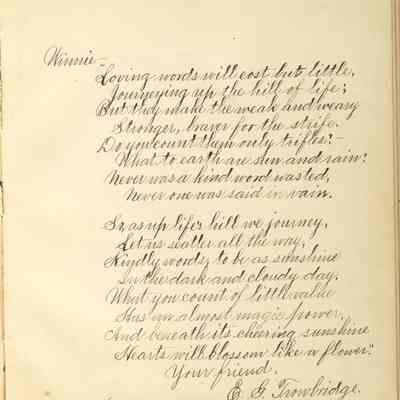 Winnie —
Loving words will cost but little,
Journeying up the hill of life;
But they make the weak and weary
Stronger, braver for the strife.
Do you count them only trifles? —
What to earth are sun and rain?
Never was a kind word wasted,
Never one was said in vain.
So as up life's hill we journey,
Let us scatter all the way,
Kindly words, to be as sunshine
In the dark and cloudy day.
What you count of little value
Has an almost magic power,
And beneath its cheering sunshine
Hearts will blossom like a flower."
Your friend.
E. G. Trowbridge.